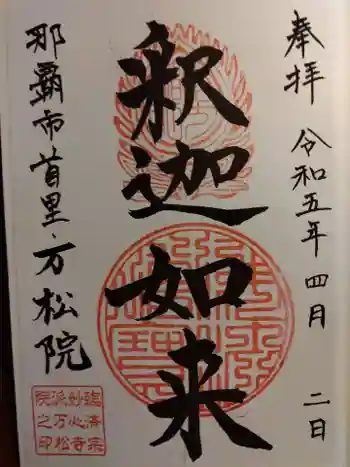 奉拝 令和五年四月二日
釈迦如来
那覇市首里・万松院
臨済宗
妙心寺
派万松
院之印